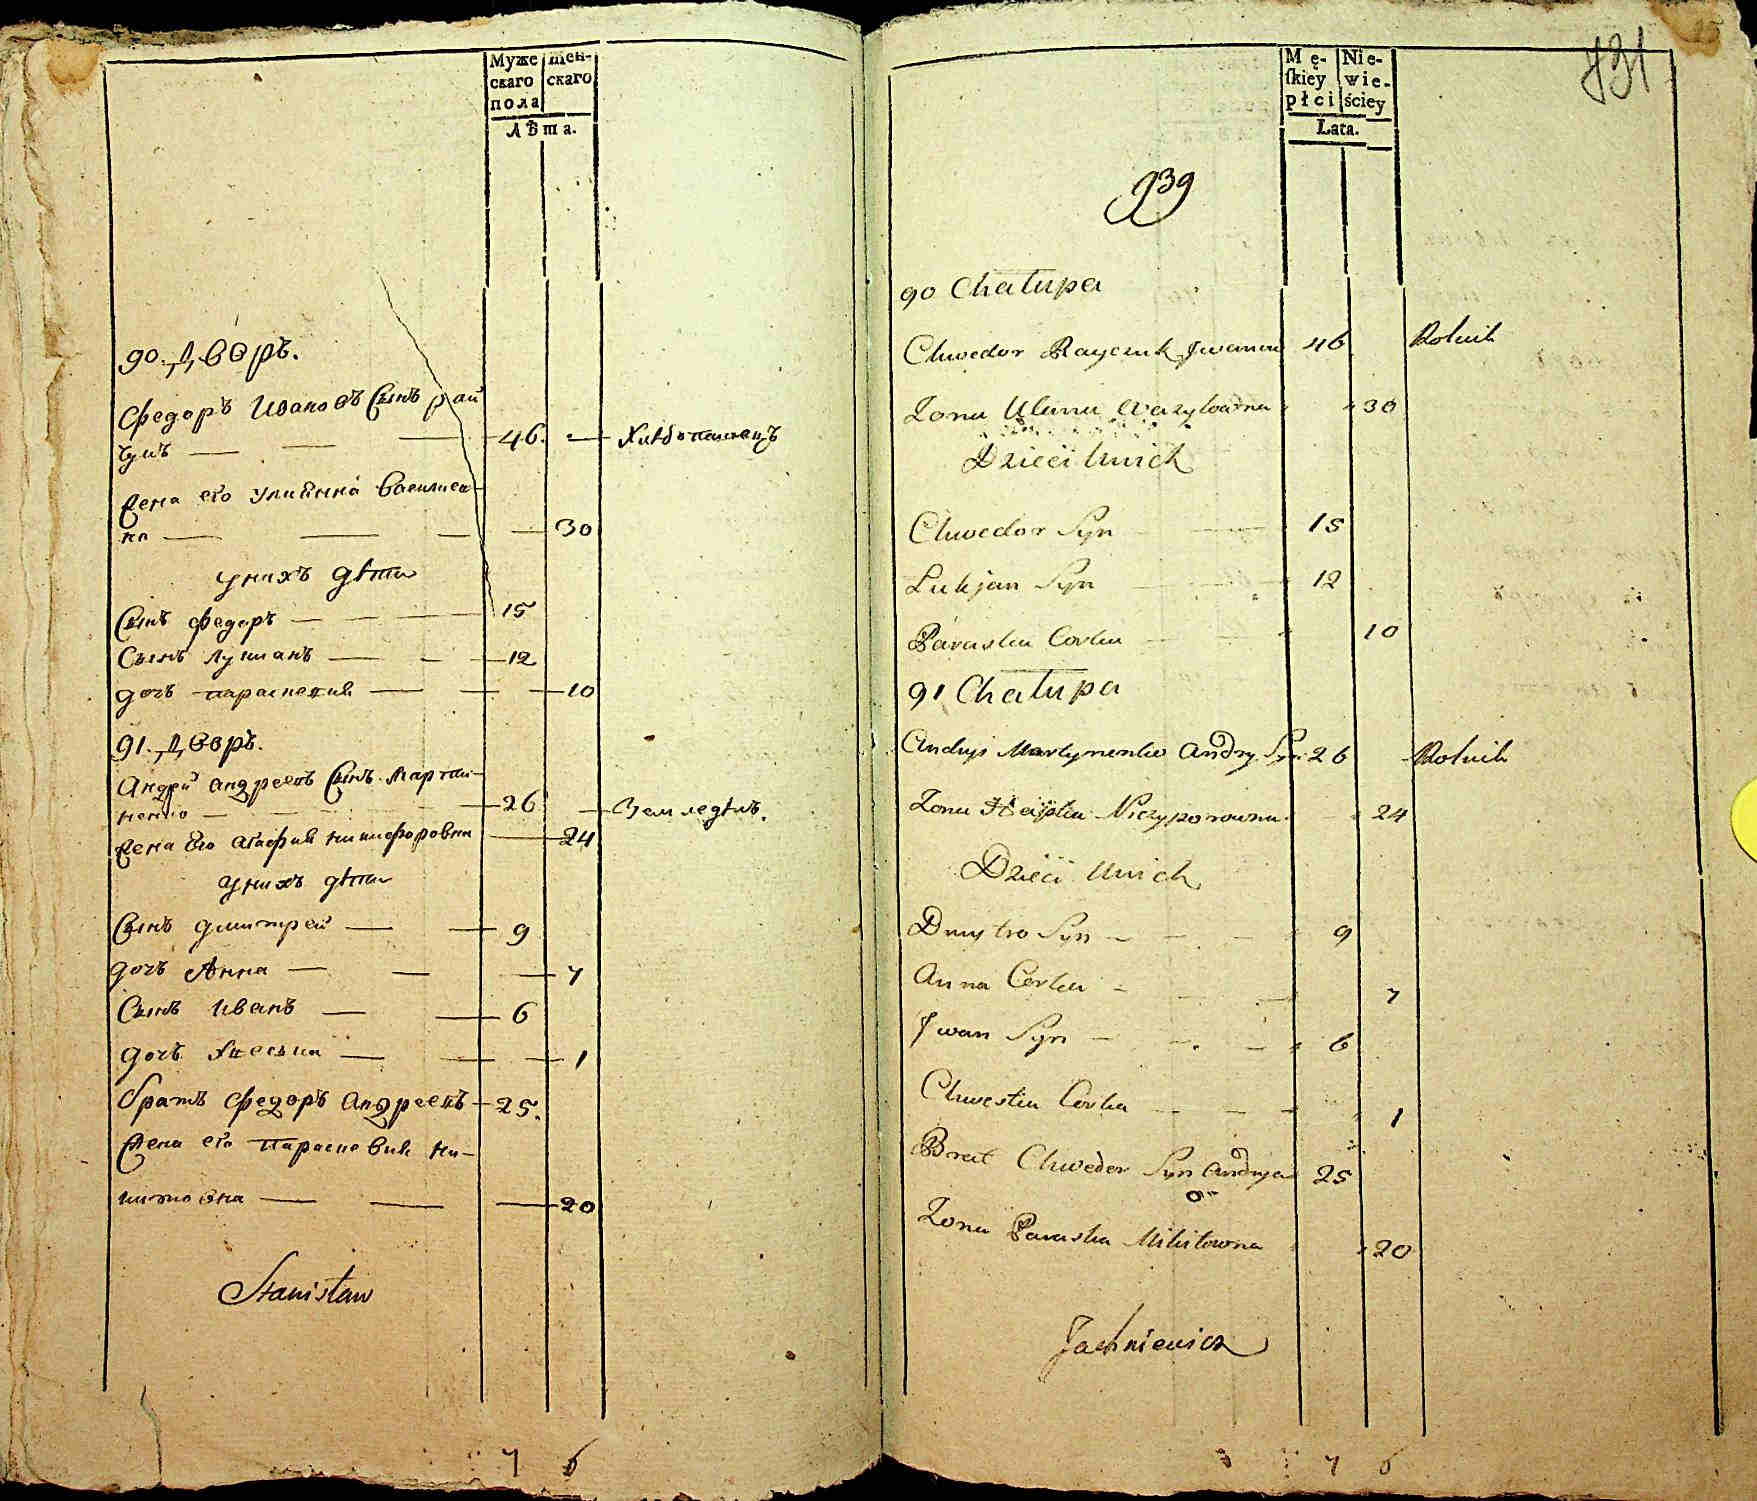 Муже
скаго
пола
жен-
скаго
Лѣта.
90. Дворъ.
Федоръ Ивановъ Сынъ рай
чукъ — 46. — Хлѣбопашецъ
Жена его Улиянна Василиев-
на — 30
у нихъ дѣти
Сынъ Федоръ — 15
Сынъ Лукианъ — 12
дочь параскевия — 10
91. Дворъ.
Андрей андреевъ Сынъ Марти-
ненко — 26 — Земледѣлъ.
Жена Его агафия никифоровна — 24
у нихъ дѣти
Сынъ димитрей — 9
дочь Анна — 7
Сынъ иванъ — 6
дочь — 1
братъ Федоръ андреевъ — 25.
Жена его параскевия ни-
китовна — 20
Stanisław
7 6
Mę-
skiey
płci
Nie-
wie-
ściey
Lata.
431
939
90 Chałupa
Chwedor Rayczuk Iwanow 46 Rolnik
Zona Ulana Wazylowna 30
Dzieci Unich
Chwedor Syn 15
Lukjan Syn 12
Paraska Corka 10
91 Chałupa
Andryi Martynenko Andry. Syn 26 Rolnik
Zona Hapka Niczyporowna 24
Dzieci Unich
Dmytro Syn 9
Anna Corka 7
Iwan Syn 6
Chwestia Corka 1
Brat Chwedor Syn Andryja 25
Zona Paraska Mikitowna 20
Jachniewicz
7 6